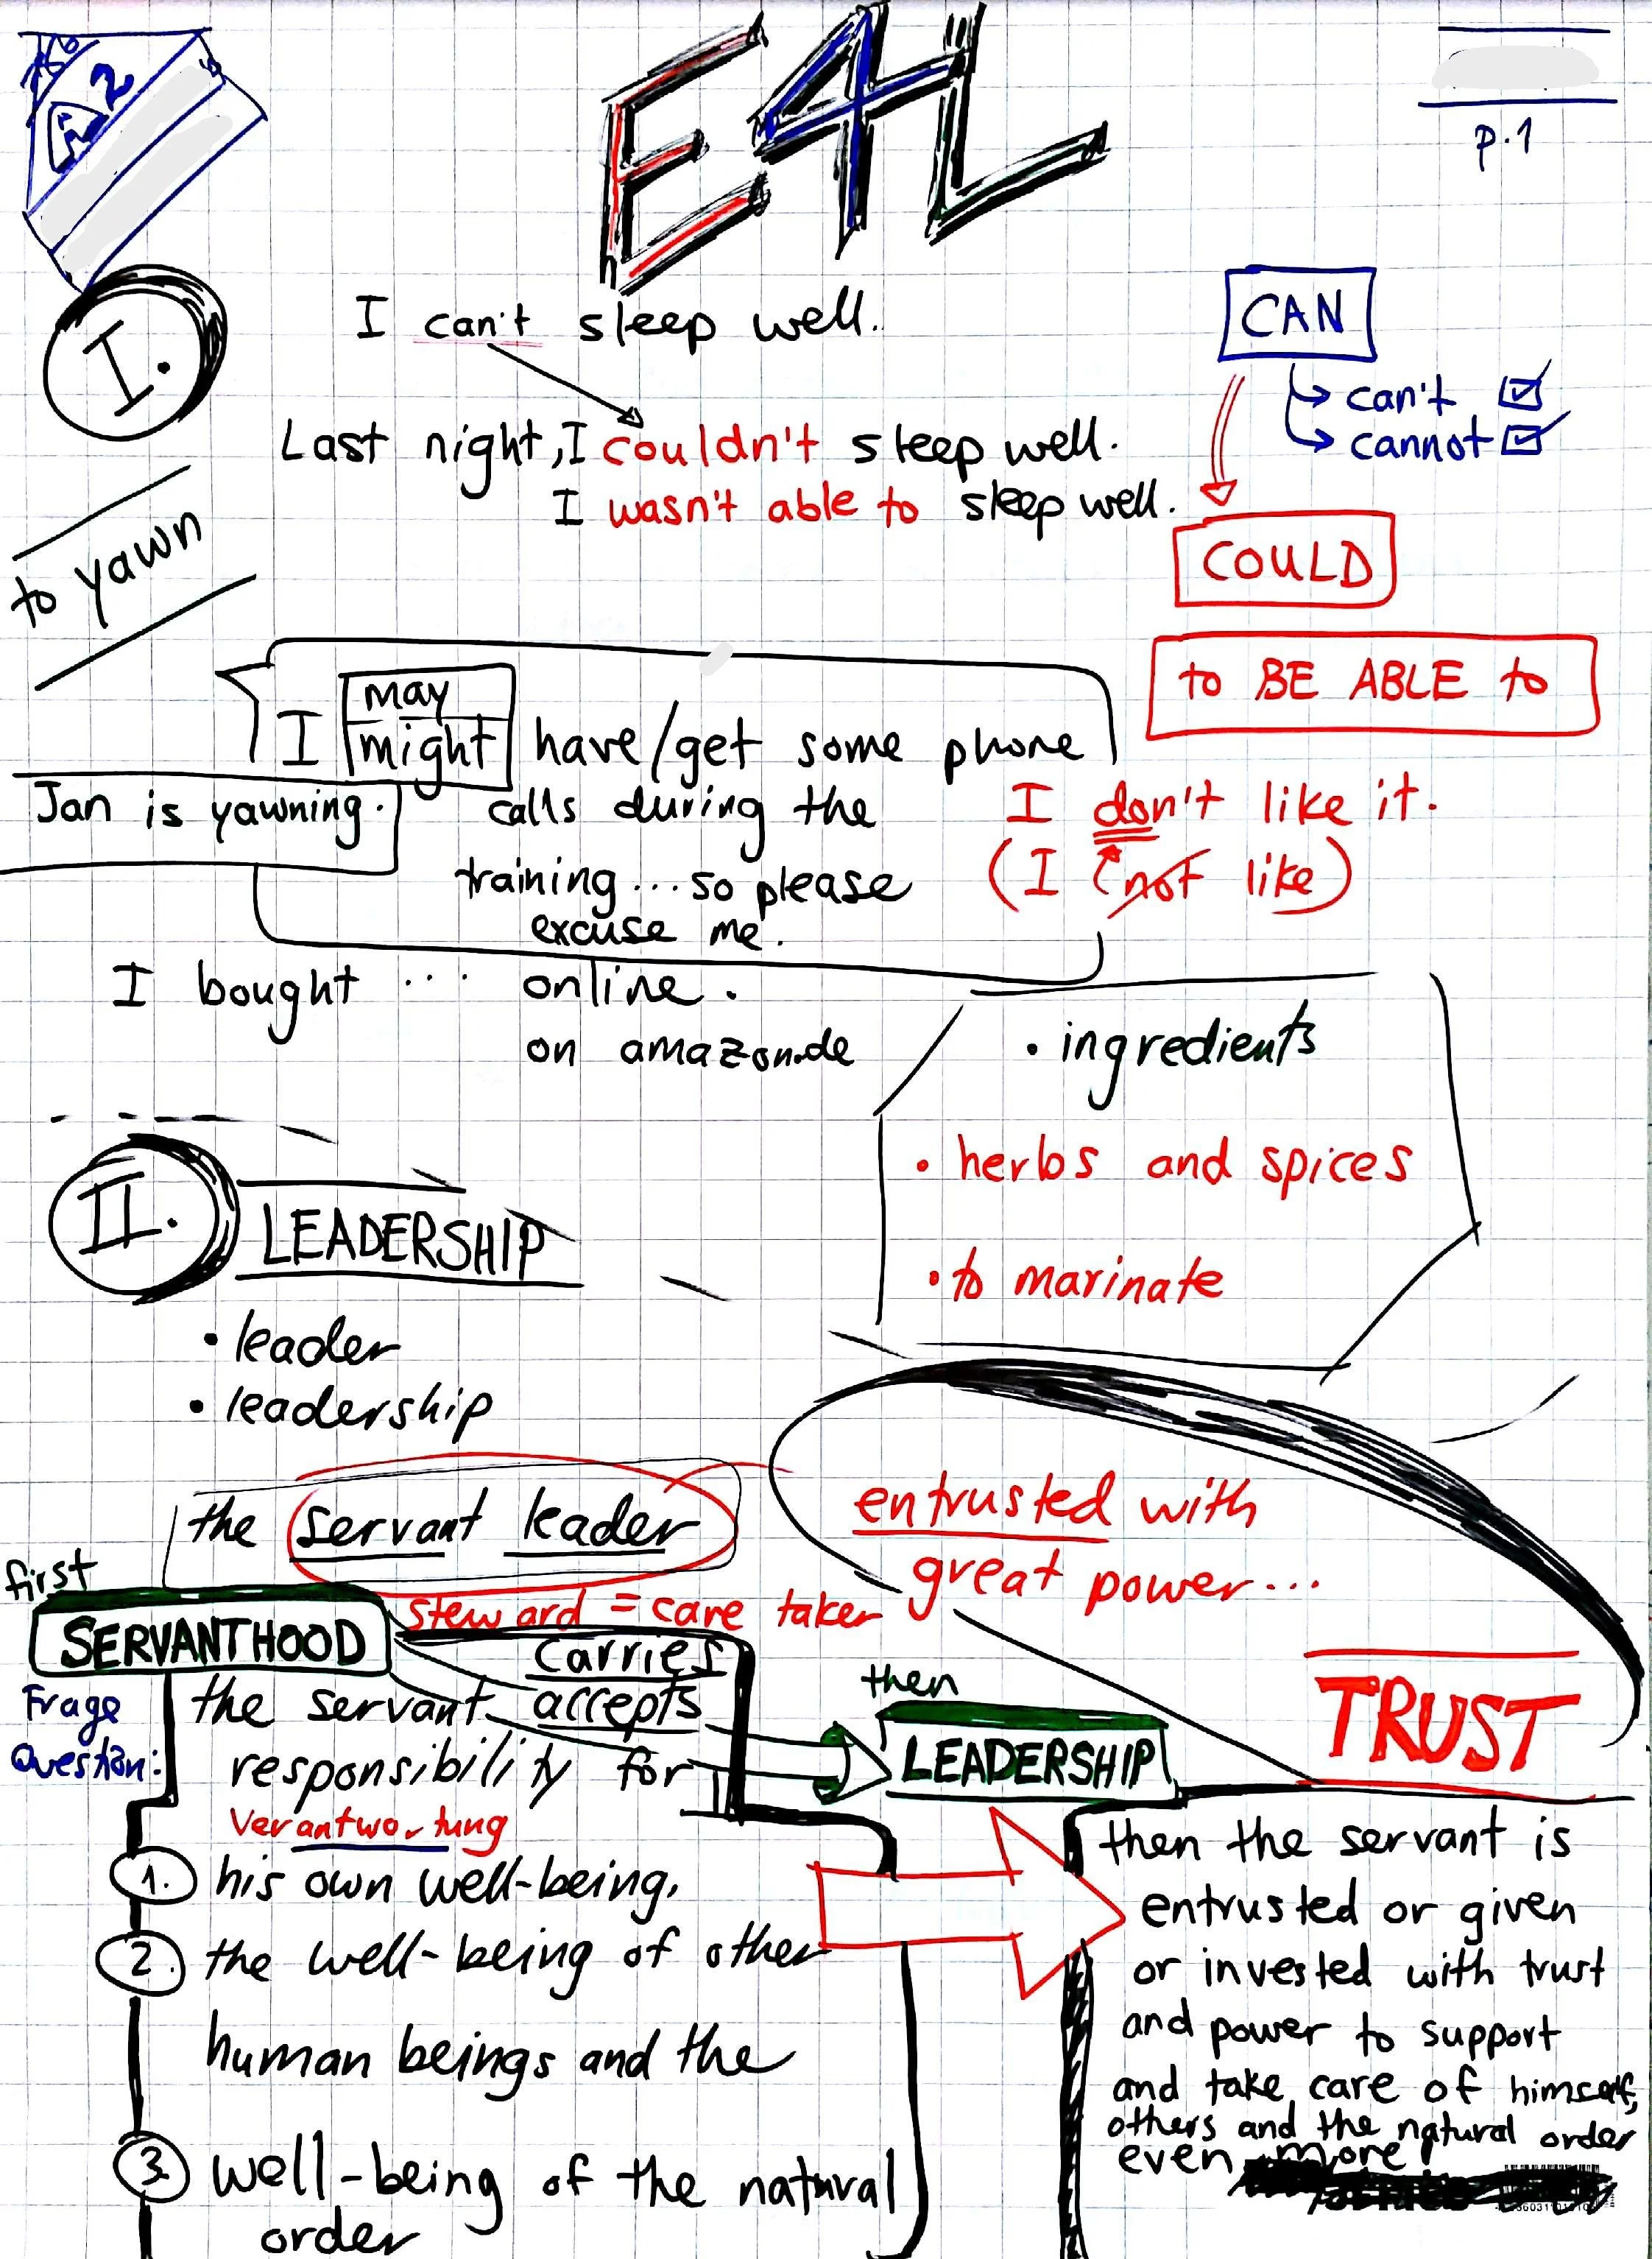 A2
E4L
p.1
I.
I can't sleep well.
CAN
can't
cannot
Last night, I couldn't sleep well.
I wasn't able to sleep well.
COULD
to yawn
to BE ABLE to
I may might have/get some phone
calls during the
training...so please
excuse me.
Jan is yawning.
I don't like it.
(I not like)
I bought ... online.
on amazon.de
• ingredients
• herbs and spices
• to marinate
II. LEADERSHIP
• leader
• leadership
the servant leader
entrusted with
great power...
steward = care taker
TRUST
first
SERVANTHOOD
Frage
Question:
carries
the servant accepts
responsibility for
Verantwortung
1. his own well-being,
2. the well-being of other
human beings and the
3. well-being of the natural
order
then
LEADERSHIP
then the servant is
entrusted or given
or invested with trust
and power to support
and take care of himself,
others and the natural order
even more